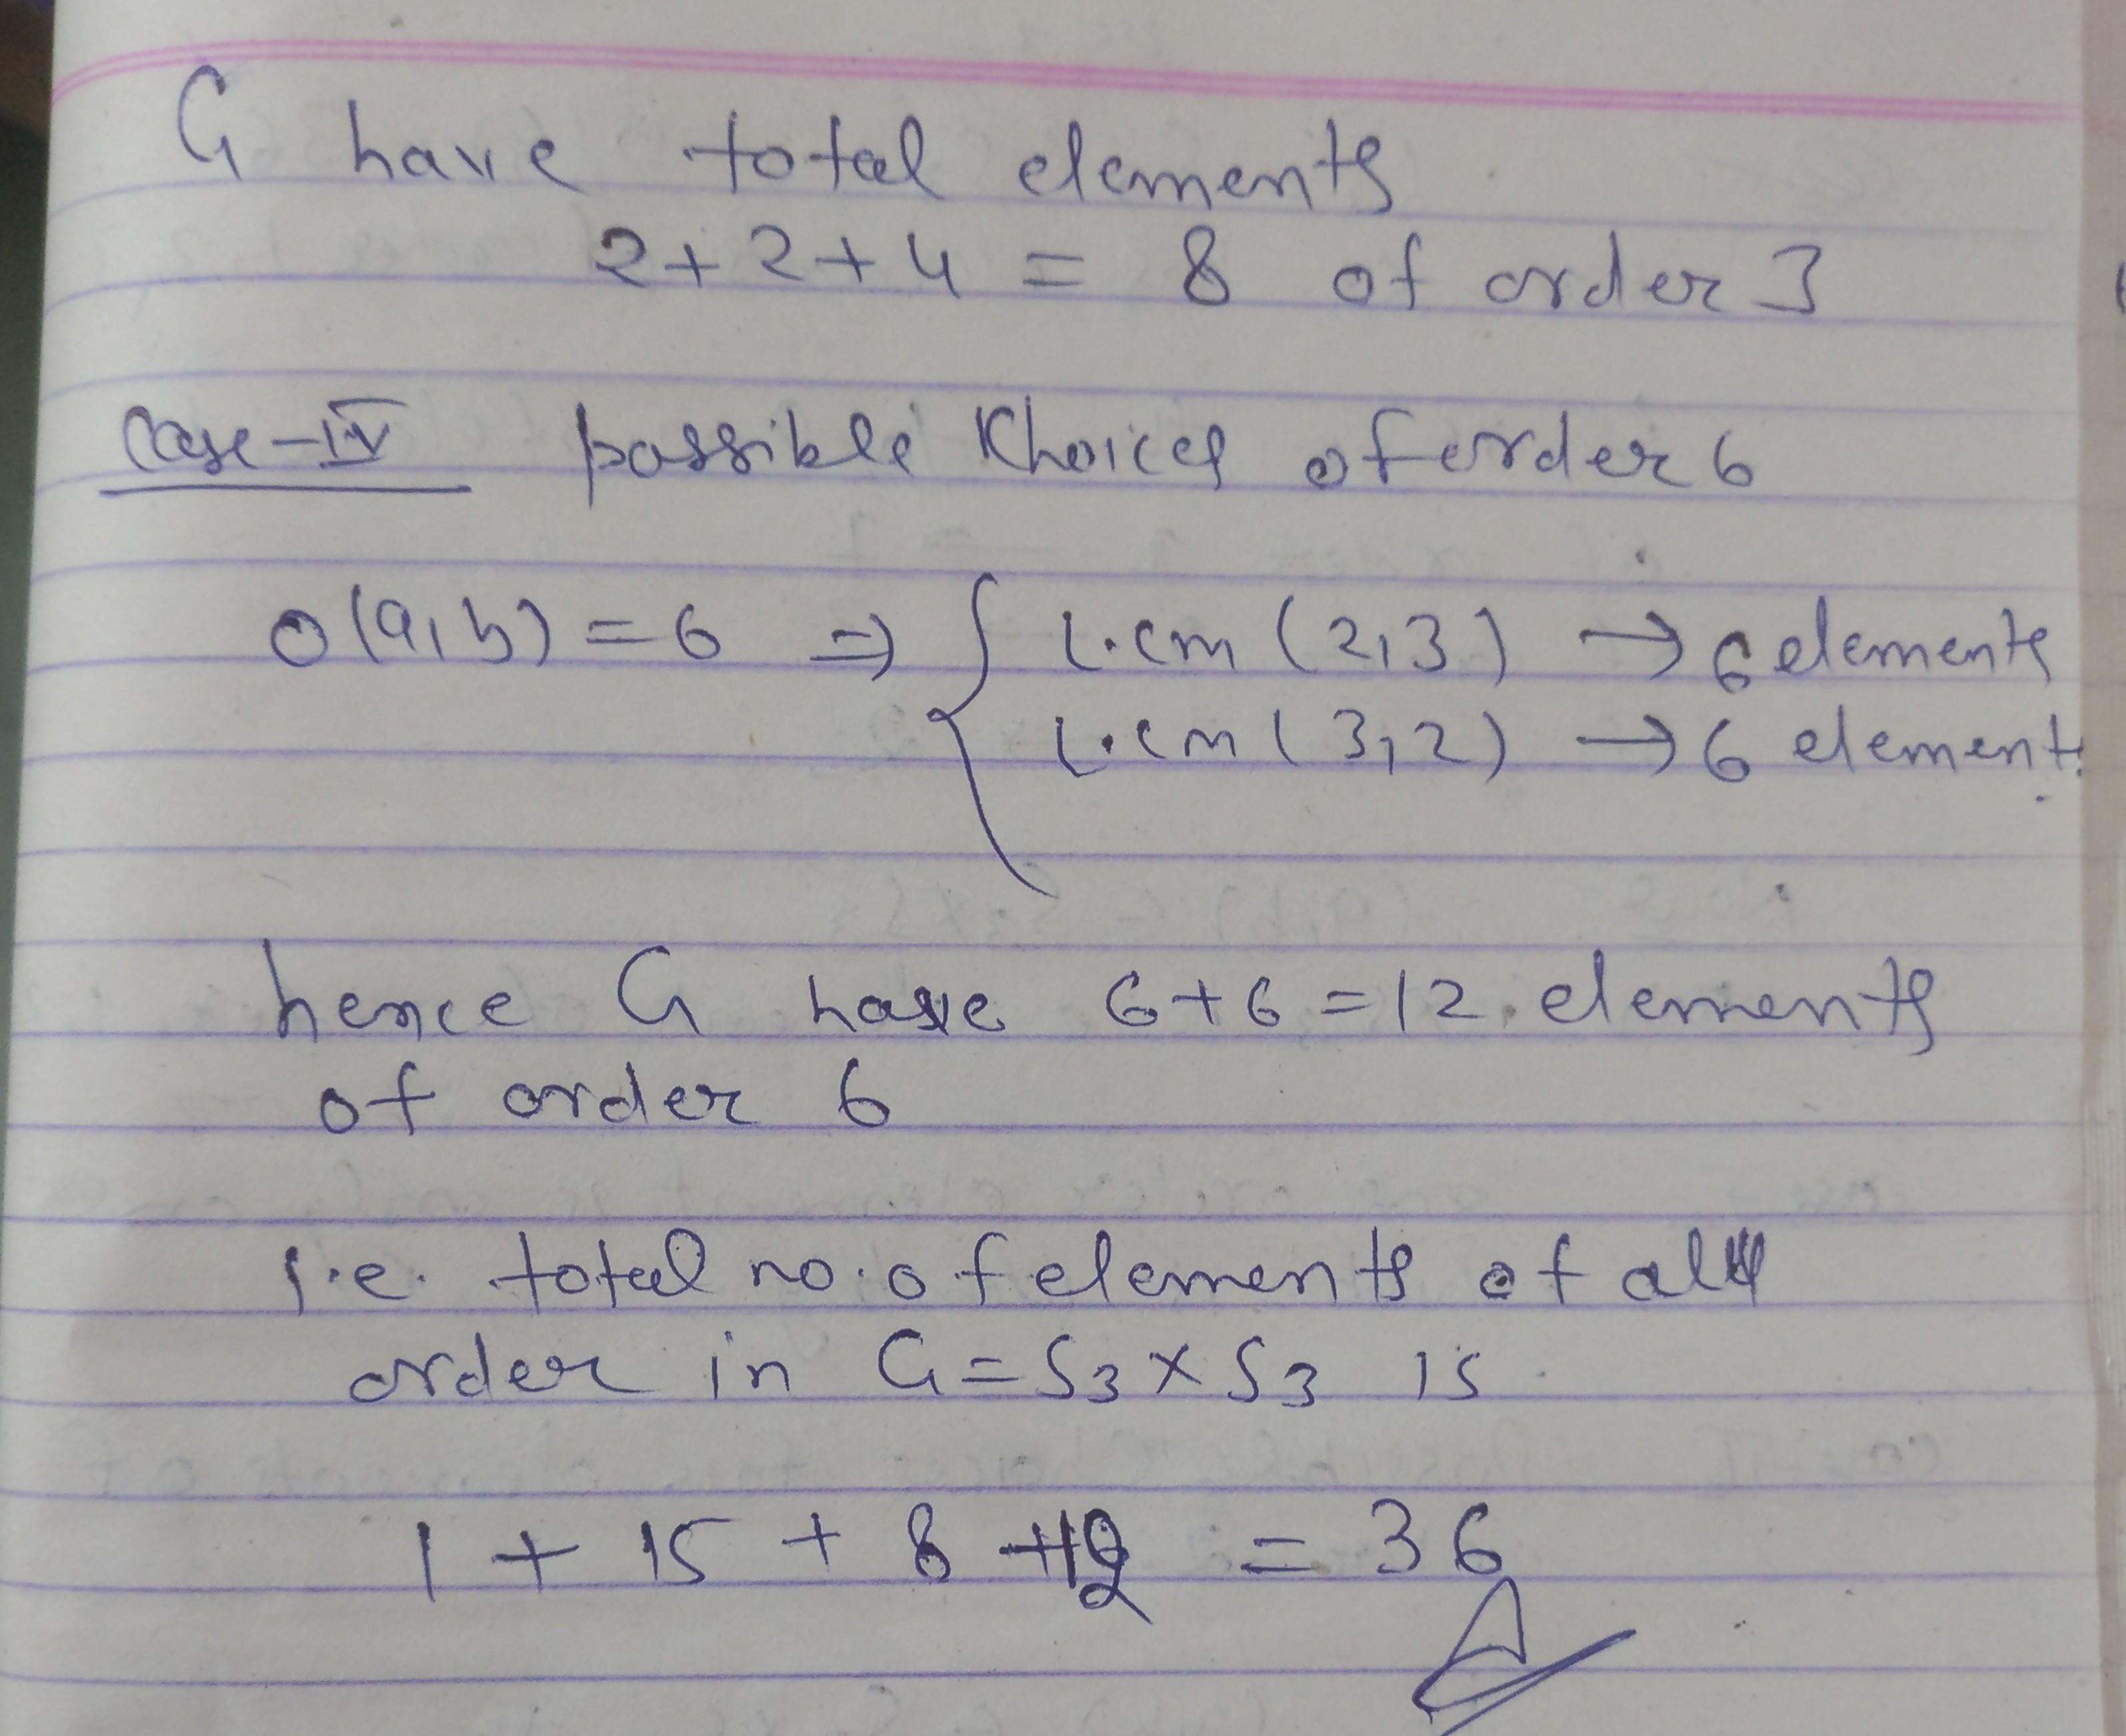 G have total elements
2+2+4 = 8 of order 3
Case-IV possible Khoices of order 6
O(a,b) = 6 ⇒ { L.cm (2,3) → 6 elements
L.cm (3,2) → 6 element
hence G have 6+6=12 elements
of order 6
i.e. total no. of elements of all
order in G = S3 × S3 is
1 + 15 + 8 + 12 = 36